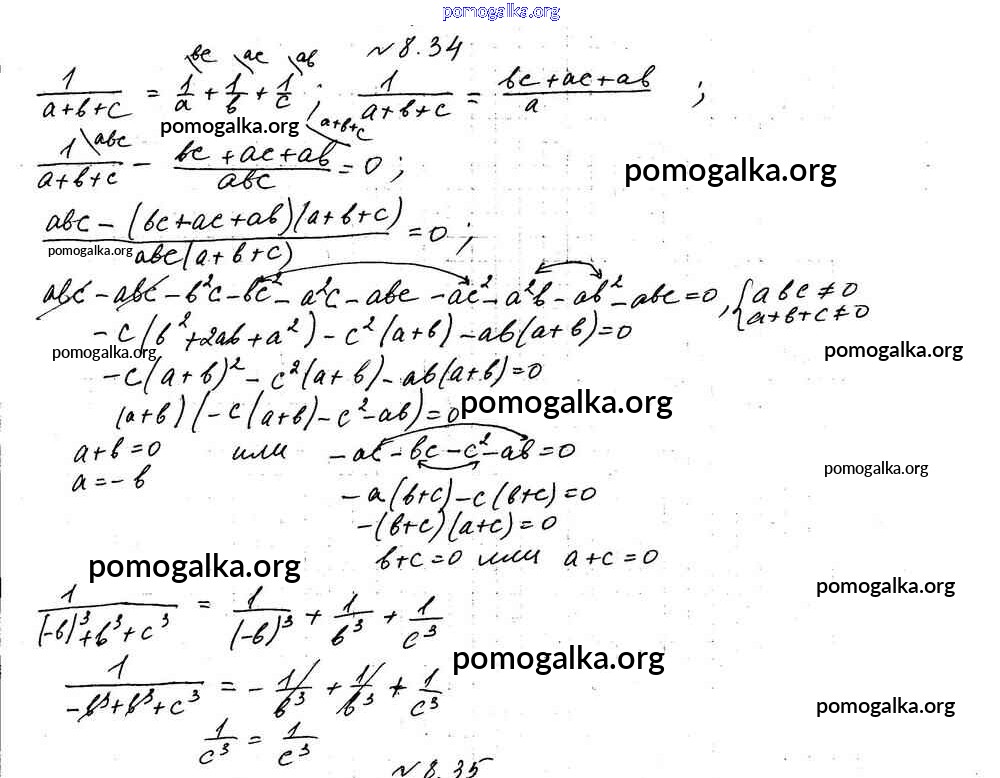 pomogalka.org
№ 8.34
1/(a+в+c) = 1/a \вc + 1/в \ac + 1/c \ab ; 1/(a+в+c) = (вc+ac+aв)/a ;
pomogalka.org
1\aвc/(a+в+c) - (вc+ac+aв)\a+в+c/(aвc) = 0 ;
pomogalka.org
(aвc - (вc+ac+aв)(a+в+c))/(aвc(a+в+c)) = 0 ;
pomogalka.org
aвc - aвc - в²c - вc² - a²c - aвc - ac² - a²в - aв² - aвc = 0, { aвc ≠ 0
a+в+c ≠ 0
-c(в²+2aв+a²) - c²(a+в) - aв(a+в) = 0
pomogalka.org pomogalka.org
-c(a+в)² - c²(a+в) - aв(a+в) = 0
(a+в)(-c(a+в) - c² - aв) = 0 pomogalka.org
a+в=0 или -ac - вc - c² - aв = 0
a=-в
pomogalka.org
-a(в+c) - c(в+c) = 0
-(в+c)(a+c) = 0
в+c=0 или a+c=0
pomogalka.org
pomogalka.org
1/((-в)³+в³+c³) = 1/(-в)³ + 1/в³ + 1/c³
pomogalka.org
1/(-в³+в³+c³) = -1/в³ + 1/в³ + 1/c³
pomogalka.org
1/c³ = 1/c³
№ 8.35